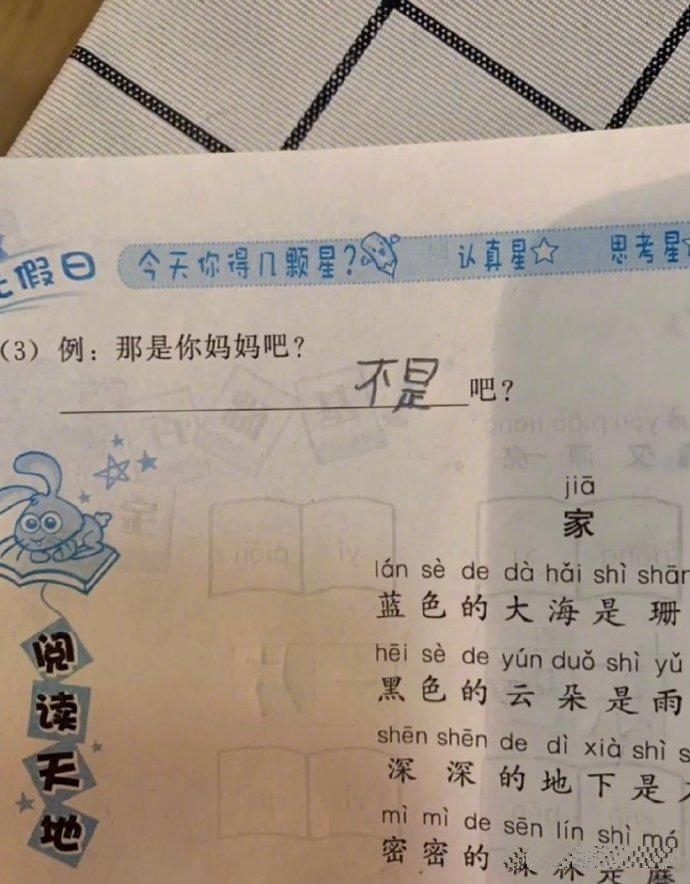 假日
今天你得几颗星? 认真星 思考星
(3) 例：那是你妈妈吧？
不是吧？
jiā
家
lán sè de dà hǎi shì shān
蓝色的大海是珊
hēi sè de yún duǒ shì yǔ
黑色的云朵是雨
shēn shēn de dì xià shì
深深的地下是
mì mì de sēn lín shì mó
密密的森林是蘑
阅读天地